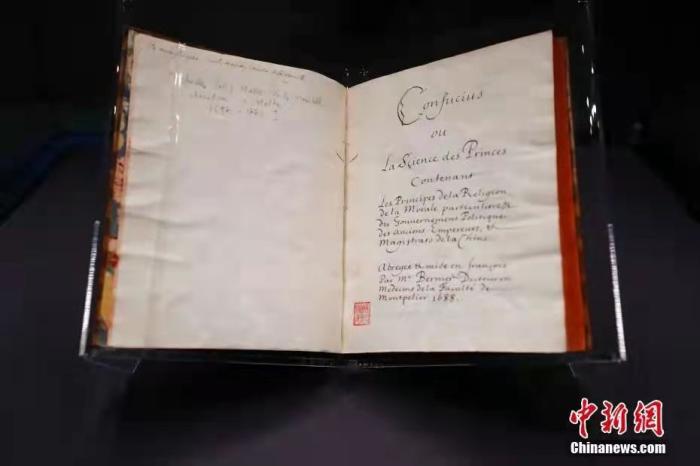 Confucius
ou
La Science des Princes
Contenant
Les Principes de la Religion
de la Morale particuliere &
du Gouvernement Politique
des anciens Empereurs, &
Magistrats de la Chine.
Abregée & mise en françois
Par Mr Bernier Docteur en
Medecine de la Faculté de
Montpelier 1688.
中新网
Chinanews.com